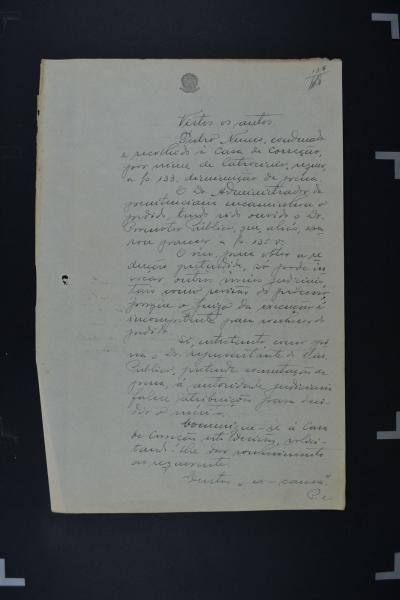 136
Vistos os autos.
Pedro Nunes, condemnado
e recolhido à Casa de Correcção,
por crime de latrocinio, requer,
a fs. 133, diminuição de pena.
O Dr. Administrador da
penitenciaria encaminhou o
pedido, tendo sido ouvido o Dr.
Promotor Público, que, aliás, exa-
rou parecer a fs. 135 v.
O réu, para obter a re-
ducção pretendida, só pode in-
vocar outros meios judiciaes,
taes como revisão do processo
porque o juizo da execução é
incompetente para conhecer do
pedido.
Si, entretanto, como opi-
na o Dr. representante do Mᵒ
Publico, pretende commutação de
pena, á autoridade judiciaria
fallece attribuições para deci-
dir o mérito.
Communique-se á Casa
de Correção esta decisão, solici-
tando-lhe dar conhecimento
ao requerente.
Custas "ex-causa".